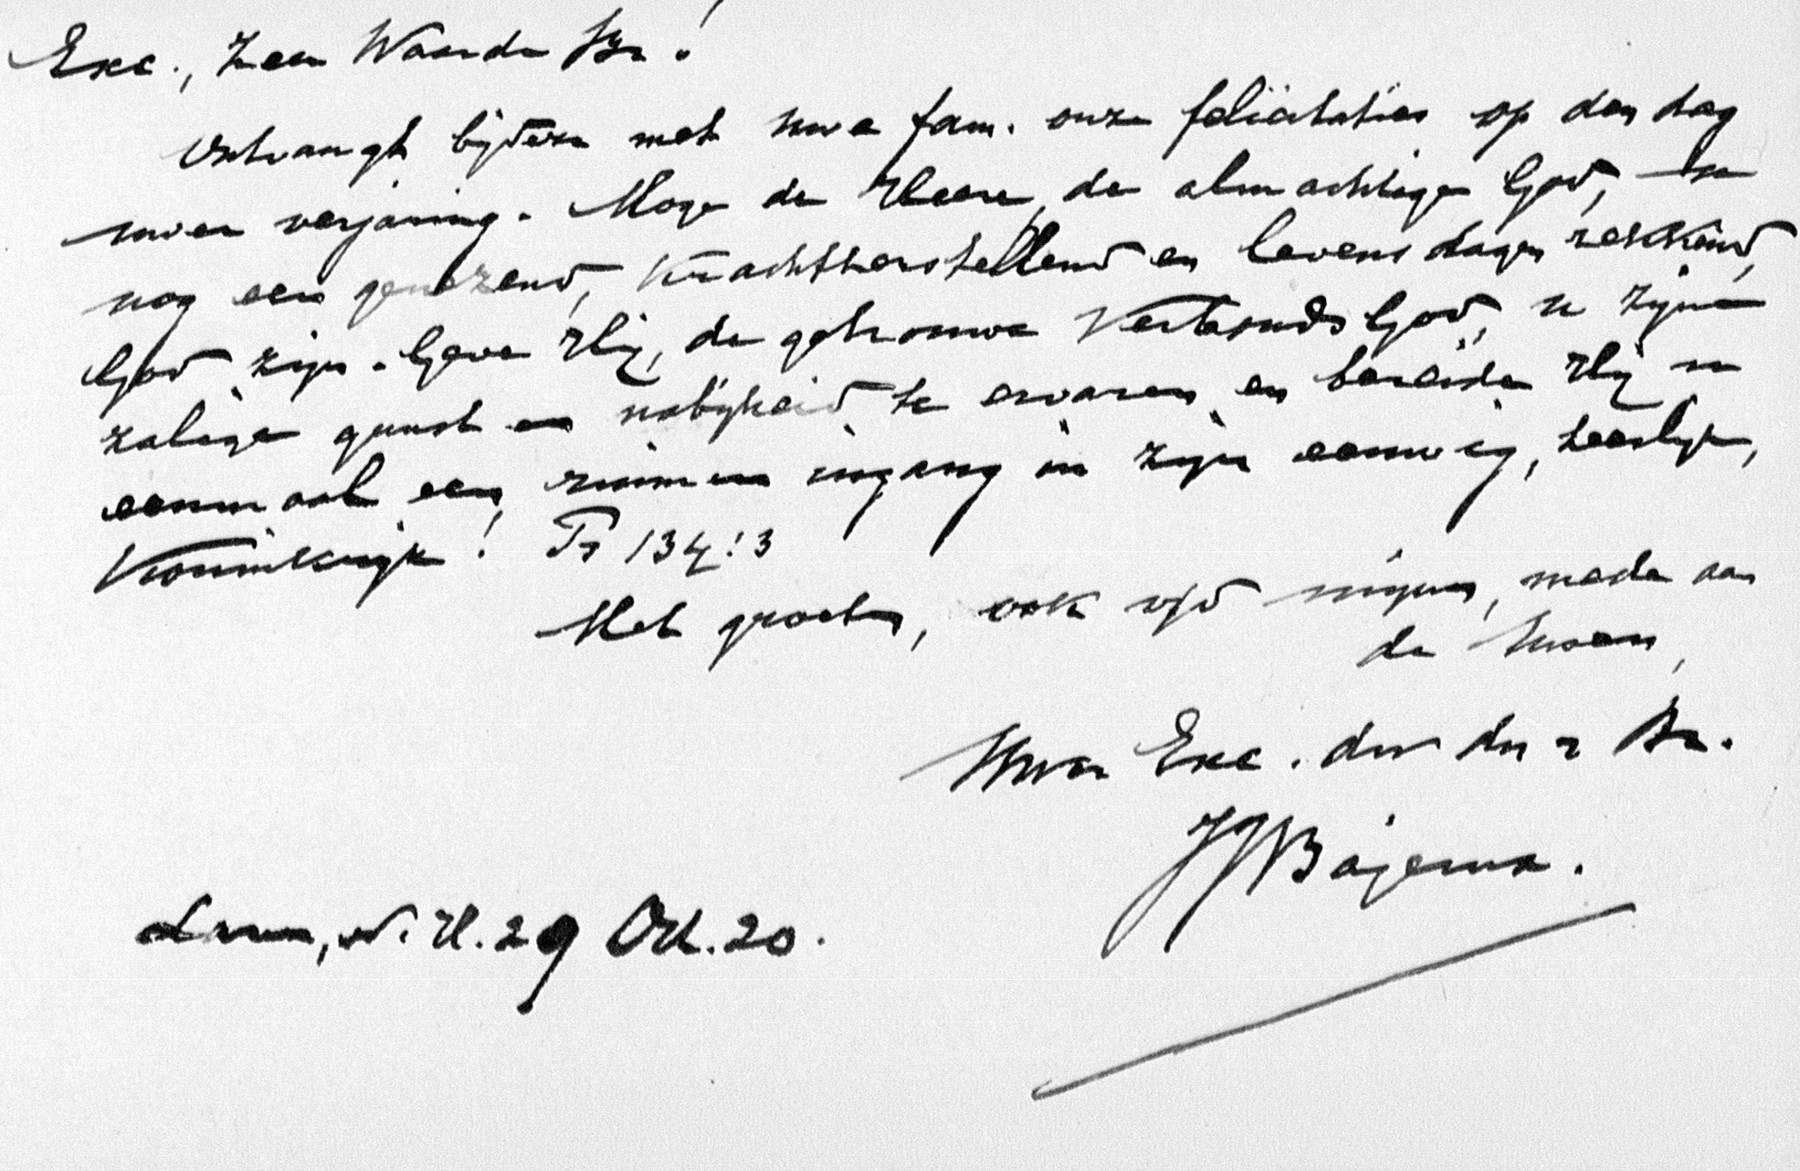 Exc., Zeer Waarde Br!
Ontvangt bijdezen met uwe fam. onze felicitaties op den dag
uwer verjaring. Moge de Heere, de almachtige God, U
nog een genezend, krachtherstellend en levensdagen rekkend,
God zijn. Geve Hij, de getrouwe Verbonds God, U zijne
zalige gunst en nabijheid te ervaren en bereide Hij U
eenmaal een ruimen ingang in zijn eeuwig, heerlijk,
Koninkrijk! Ps 134:3
Met groeten, ook v/d mijnen, mede aan
de Uwen,
Uwer Exc. dw dr z Br.
JJBajema.
29 Okt. 20.